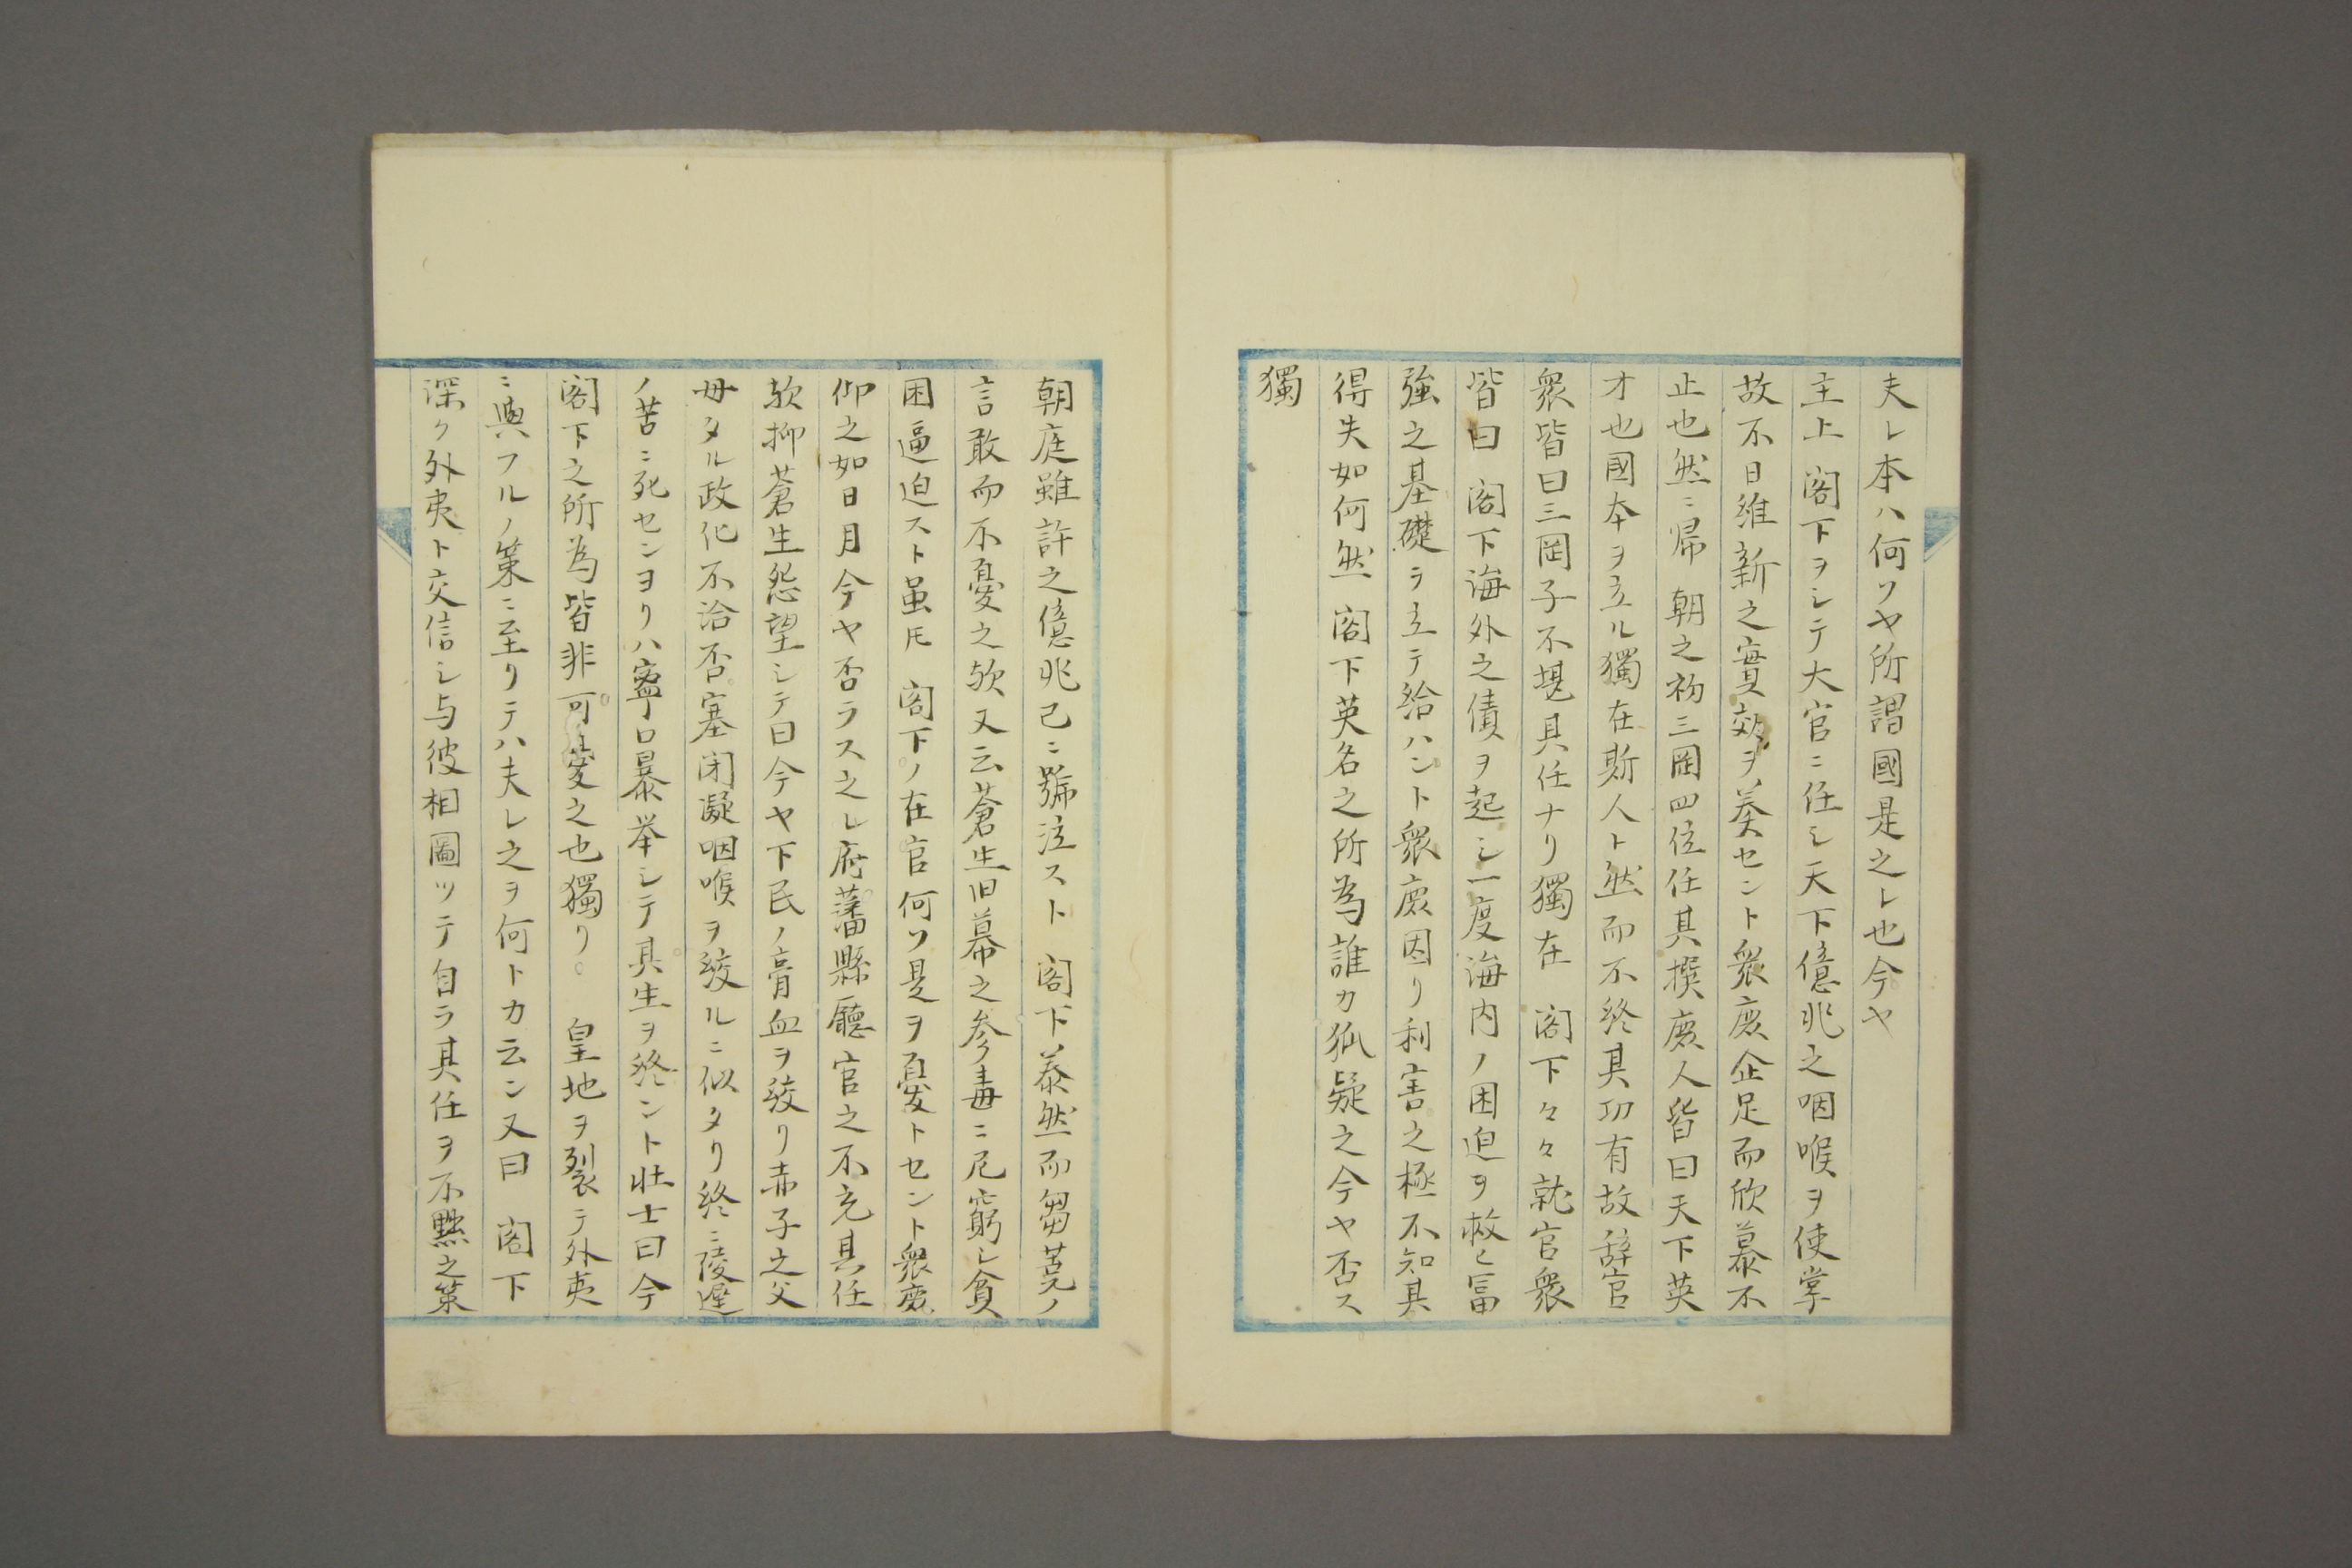 夫レ本ハ何ソヤ所謂國是之レ也今ヤ
主上　閣下ヲシテ大官ニ任シ天下億兆之咽喉ヲ使掌
故不日維新之實效ヲ奏セント衆庶企足而欣慕不
止也然ニ帰　朝之初三岡四位任其撰庶人皆曰天下英
才也國本ヲ立ル獨在斯人ト然而不終其功有故辞官
衆皆曰三岡子不堪其任ナリ獨在　閣下々々就官衆
皆曰　閣下海外之債ヲ起シ一度海内ノ困迫ヲ救ヒ冨
強之基礎ラ立テ給ハント衆庶因リ利害之極不知其
得失如何然　閣下英名之所為誰カ狐疑之今ヤ否ス
獨
朝庭雖許之億兆己ニ號泣スト　閣下泰然而芻蕘ノ
言敢而不憂之欤又云蒼生旧幕之参毒ニ尼窮シ貪
困逼迫スト虽𪜈　閣下ノ在官何ソ是ヲ憂トセント衆庶
仰之如日月今ヤ否ラス之レ府藩縣廳官之不充其任
欤抑蒼生怨望シテ曰今ヤ下民ノ膏血ヲ絞リ赤子之父
母タル政化不洽否塞闭凝咽喉ヲ絞ルニ似タリ終ニ陵遅
ノ苦ニ死センヨリハ寧口暴挙シテ其生ヲ終ント壮士曰今
閣下之所為皆非可憂之也獨リ。　皇地ヲ裂テ外夷
ニ與フルノ策ニ至リテハ夫レ之ヲ何トカ云ン又曰　閣下
深ク外夷ト交信シ与彼相圖ツテ自ラ其任ヲ不黙之策